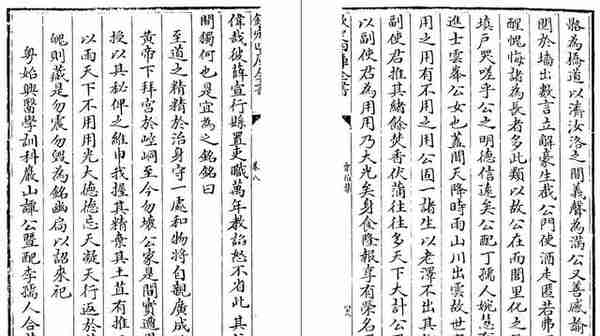 路為橋道以濟汝洛之間義聲為滿公又善感喻
鬩於墻出數言立解豪生裁公門使酒走匿若弗
醒愧悔諸為長者多此類以故公在而閭里化之
填戶哭嗟乎公之明德信遠矣公配丁孺人婉慧
進士雲峯公女也蓋聞天降時雨山川出雲故世
用之用有不用之用公固一諸生以老澤不出其
副使君推其緒餘焚香伏蒲往往多天下大計公
以副使君為用用乃大光矣身食隆報享有榮名
卷八
偉哉彼薛宣行縣置吏職萬年教諂愁不省此其
間獨何也是宜為之銘銘曰
至道之精精於治身守一處和物將自觀廣成
黃帝下拜宮於崆峒至今勿壞公家是間實適
授以其秘俾之維巾我援其精棄其土苴有推
以雨天下不用用光大德德忘天凝天行返於
魄則藏是勿震勿毀為銘幽扃以詔來祀
粵始興醫學訓科巖山譚公暨配李孺人合